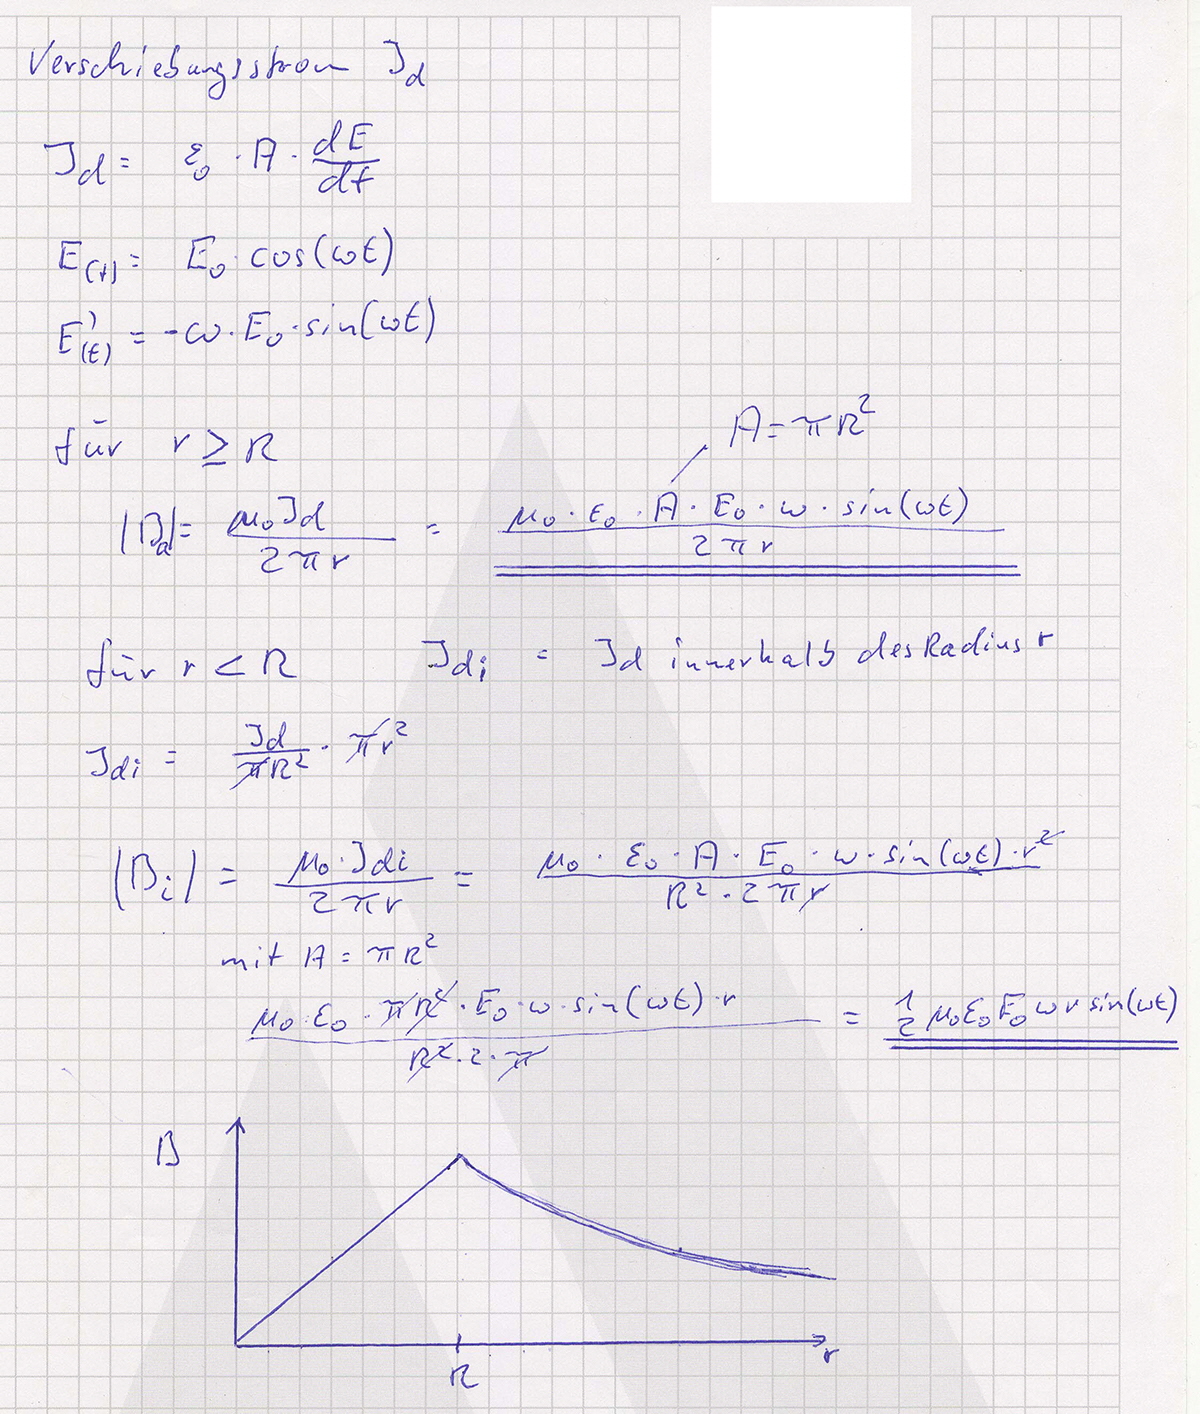 Verschiebungsstrom I_d
I_d = ε₀ · A · dE/dt
E_(t) = E₀ · cos(ωt)
E'_(t) = -ω · E₀ · sin(ωt)
für r ≥ R
A = πR²
|B_a| = μ₀ I_d / 2πr = μ₀ · ε₀ · A · E₀ · ω · sin(ωt) / 2πr
für r < R I_di = I_d innerhalb des Radius r
I_di = I_d / πR² · πr²
|B_i| = μ₀ · I_di / 2πr = μ₀ · ε₀ · A · E₀ · ω · sin(ωt) · r² / R² · 2πr
mit A = πR²
μ₀ · ε₀ · πR² · E₀ · ω · sin(ωt) · r / R² · 2 · π = 1/2 μ₀ε₀E₀ωr sin(ωt)
B
r
R